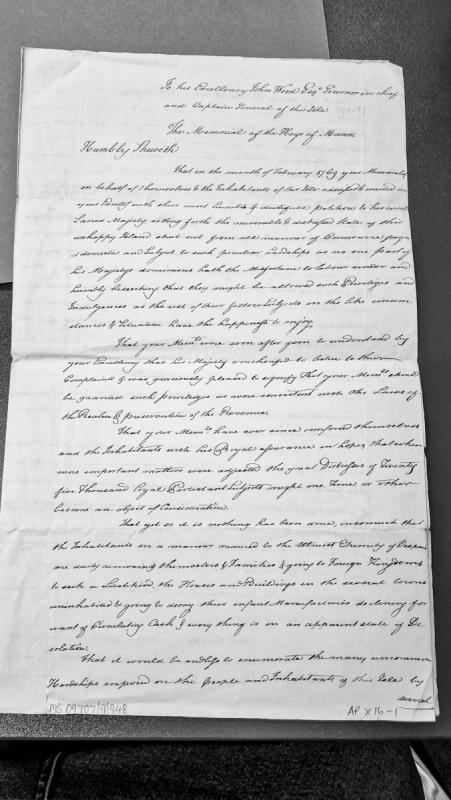 To his Excellency John Wood Esqr. Governor in chief
and Captain General of this Isle
The Memorial of the Keys of Mann
Humbly Sheweth
That in the month of February 1769 your Memorialists
on behalf of themselves & the Inhabitants of this Isle addressed & waited on
your Excelly with their most humble & dutiful petition to his most
Sacred Majesty setting forth the miserable & distressed State of this
unhappy Island shut out from all manner of Commerce foreign
& domestic and Subject to such peculiar hardships as no one part of
his Majestys dominions hath the Misfortune to labour under and
humbly beseeching that they might be allowed such Privileges and
Indulgences as the rest of their fellow Subjects in the like circum
stances & Situation have the happiness to enjoy.
That your Memts. were soon after given to understand by
your Excellency that his Majesty vouchsafed to listen to their
Complaints & was graciously pleased to signify That your Memts. should
be granted such privileges as were consistent with the Laws of
the Realm & preservation of the Revenue.
That your Memts. have ever since comforted themselves
and the Inhabitants with his Royal assurance in hopes, that when
more important matters were adjusted the great Distresses of Twenty
five Thousand Loyal Protestant Subjects might one Time or other
become an object of Consideration.
That yet so it is nothing has been done, insomuch that
the Inhabitants in a manner reduced to the utmost Extremity of Despair
are daily removing themselves & Families & going to Foreign Kingdoms
to seek a Livelihood the Houses and Buildings in the several towns
uninhabited & going to decay their infant Manufactories declining for
want of Circulating Cash & every thing is in an apparent state of De
solation.
That it would be endless to enumerate the many uncommon
Hardships imposed on the people and Inhabitants of this Isle by
several
MS 09707/9/948
AP X16-1